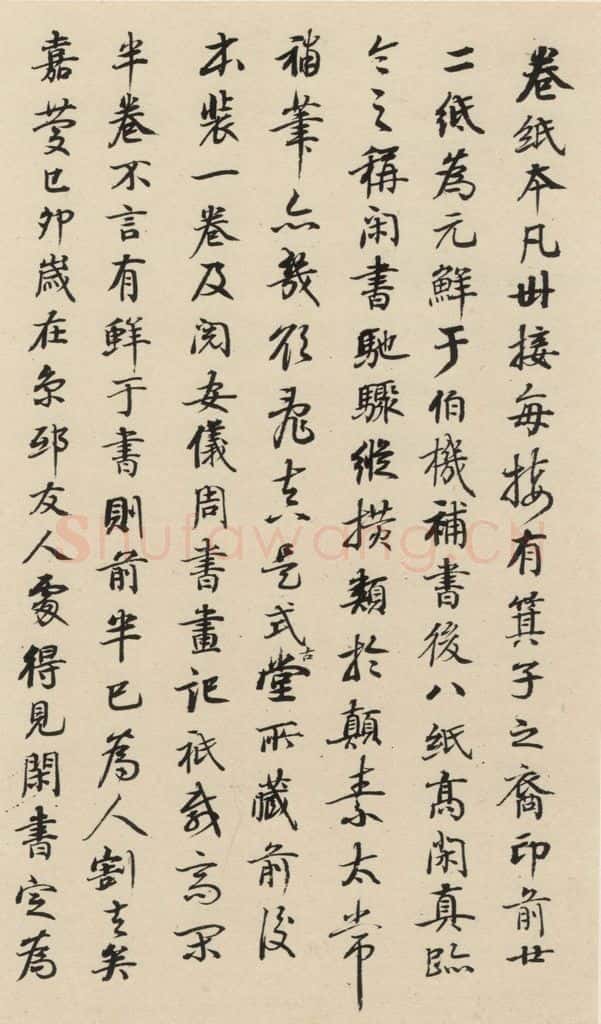 卷纸本凡卅接每接有箕子之裔印前廿
二纸為元鮮于伯機補書後八紙高闲真跡
令之稱闲書馳驟縱横類於顛素太常
補筆亦幾欲亂真是式古堂所藏前後
本裝一卷及阅安儀周書畫記祇載高闲
半卷不言有鮮于書則前半已為人割去矣
嘉慶已卯歲在京邸友人處得見閑書定為
Shufawang.CN